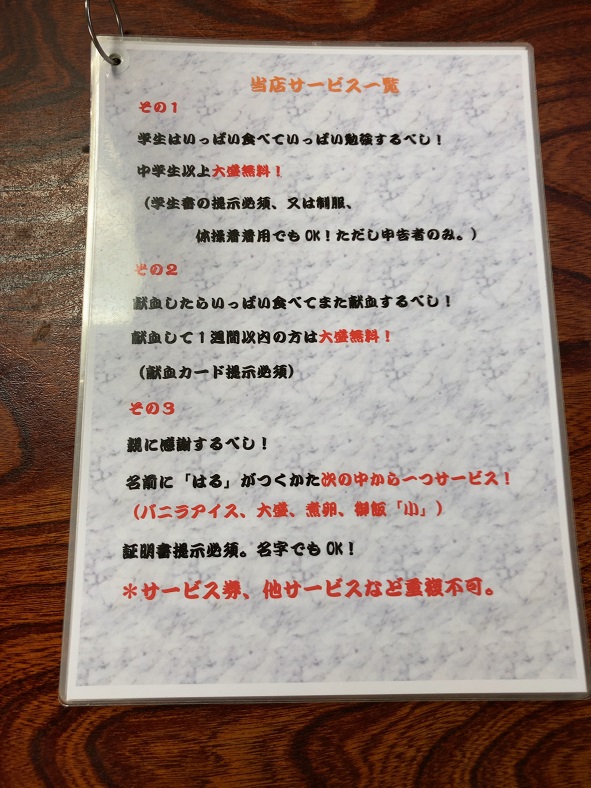 当店サービス一覧
その１
学生はいっぱい食べていっぱい勉強するべし！
中学生以上大盛無料！
（学生書の提示必須、又は制服、
体操着着用でもOK！ただし申告者のみ。）
その２
献血したらいっぱい食べてまた献血するべし！
献血して１週間以内の方は大盛無料！
（献血カード提示必須）
その３
親に感謝するべし！
名前に「はる」がつくかた次の中から一つサービス！
（バニラアイス、大盛、煮卵、御飯「小」）
証明書提示必須。名字でもOK！
＊サービス券、他サービスなど重複不可。